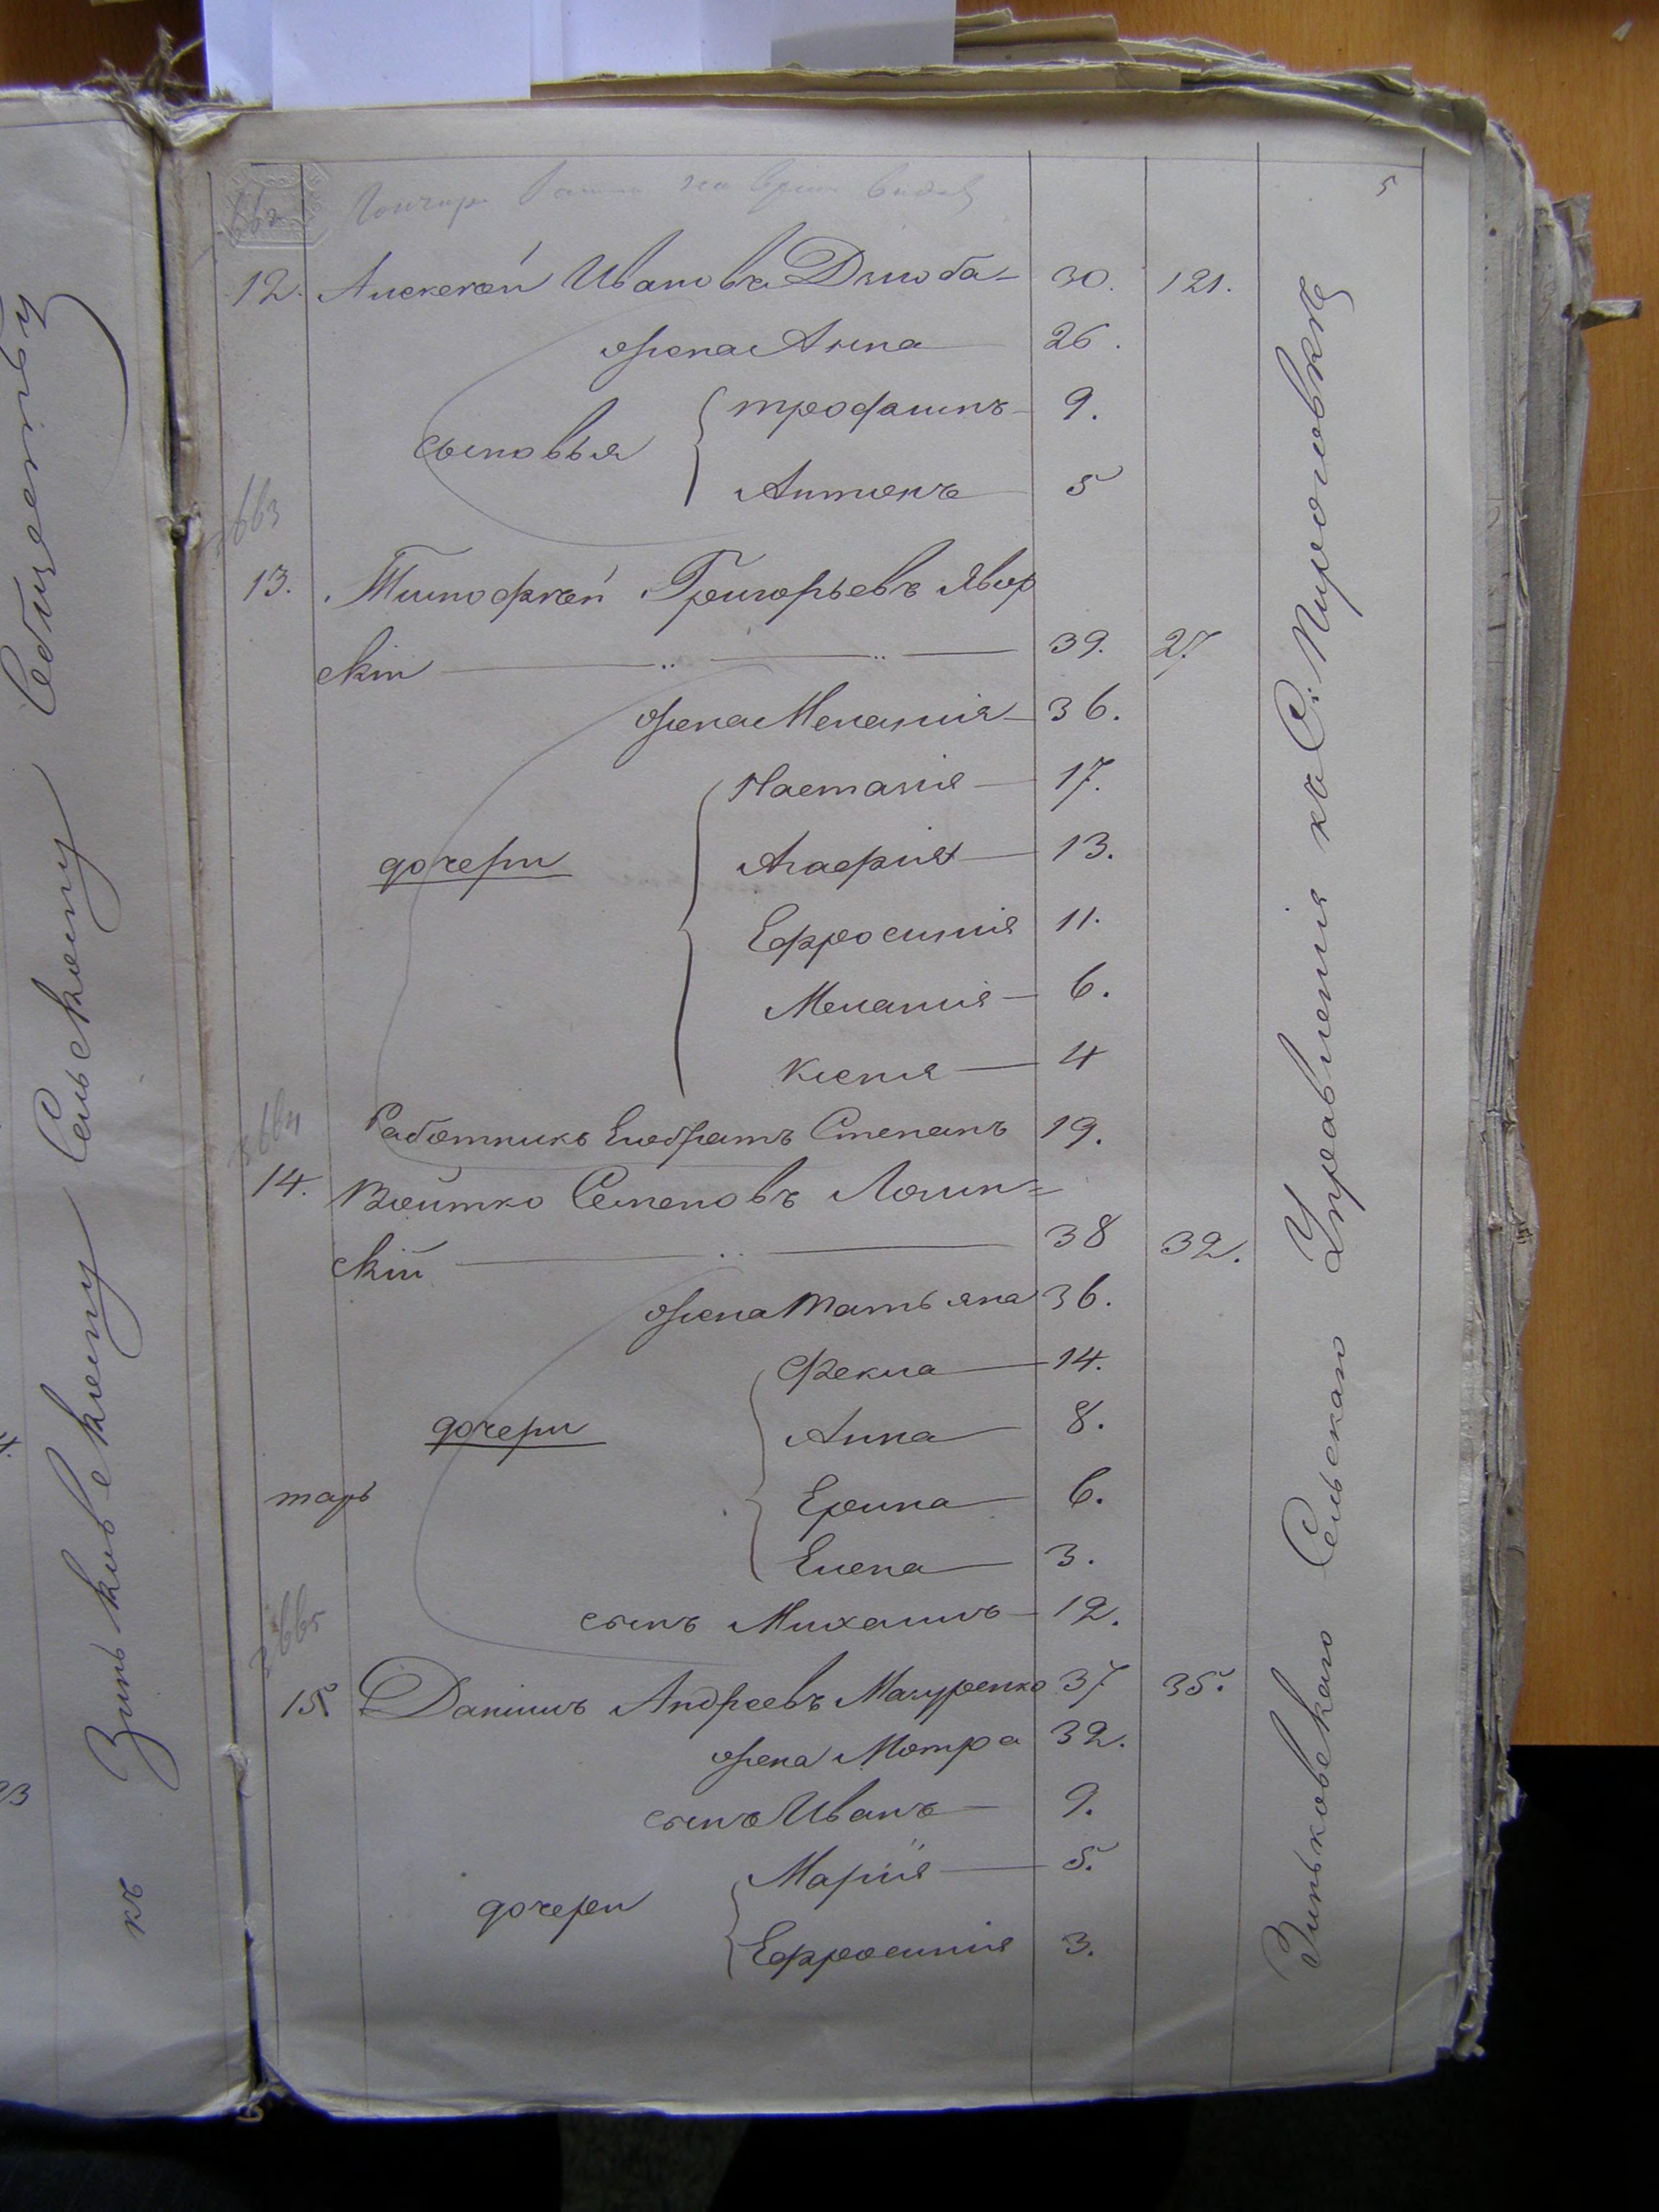 5
662
12. Алексѣй Ивановъ Дзюба 30. 121.
жена Анна 26.
сыновья
трофимъ 9.
Антонъ 5
663
13. Тимофѣй Григорьевъ Явор
скій 39. 27.
жена Меланія 36.
дочери
Настасія 17.
Агафія 13.
Ефросинія 11.
Меланія 6.
Ксенія 4
Работникъ Степанъ 19.
664
14. Войтко Семеновъ Лозин=
скій 38 32.
жена Татьяна 36.
дочери
Фекла 14.
Анна 8.
Ерина 6.
тарь
Елена 3.
сынъ Михаилъ 12.
665
15. Даніилъ Андреевъ Мазуренко 37 35.
жена Мотра 32.
сынъ Иванъ 9.
дочери
Марія 5.
Ефросинія 3.
Зиньковскаго Сельскаго Управленія къ С. Пироговкѣ
къ Зиньковскому Сельскому Обществу